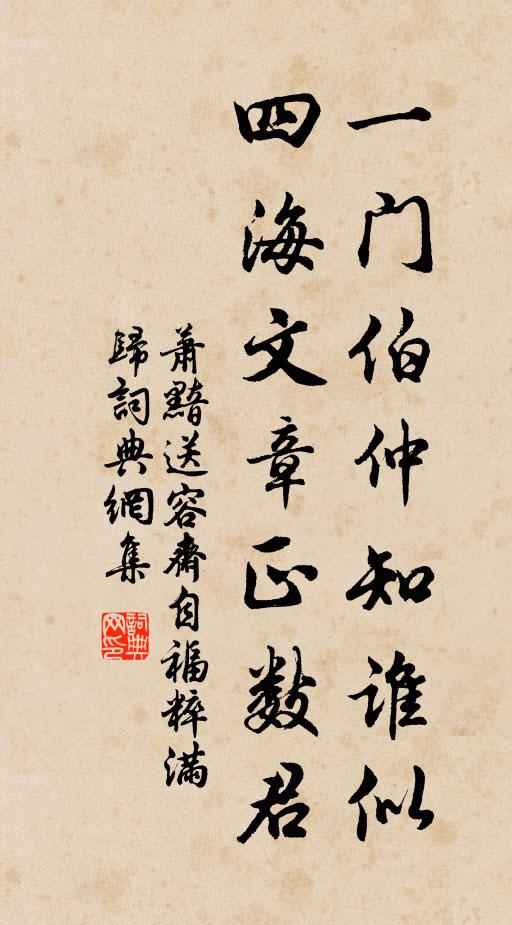 一门伯仲知谁似
四海文章正数君
萧黯送容斋自福粹满
歸詞典網集
詞典网印